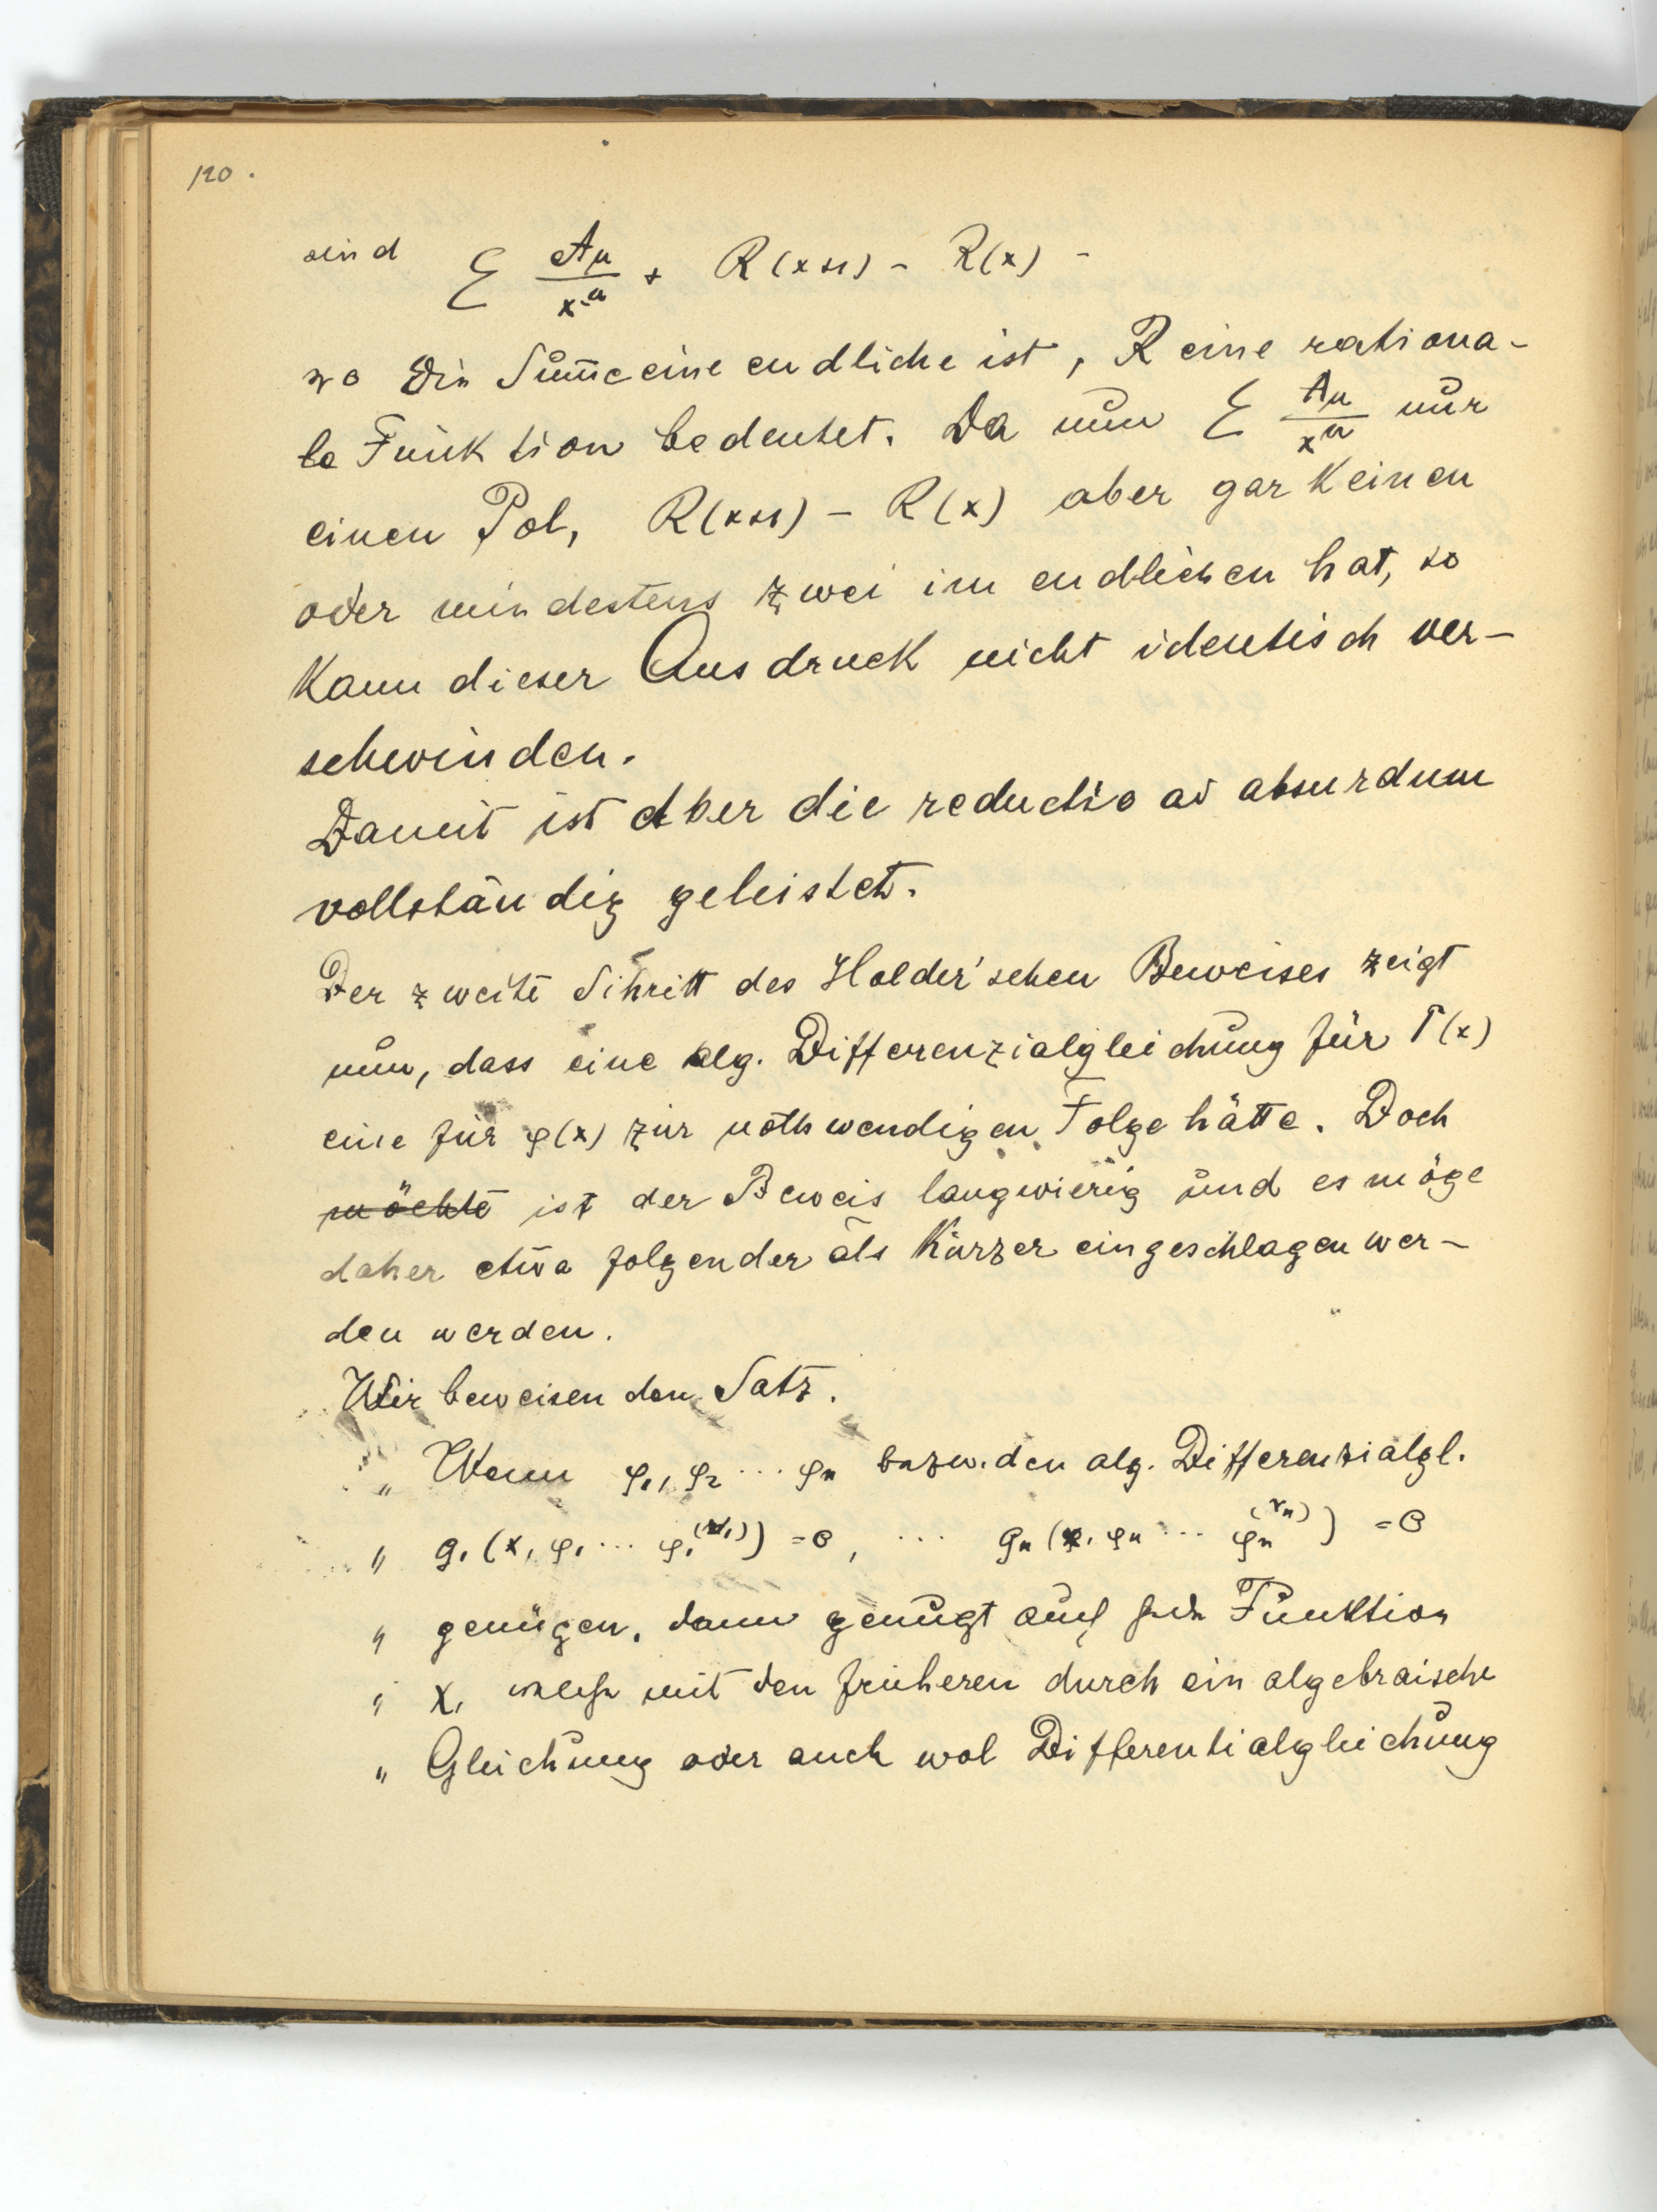 120.
sind Σ Aμ/x^μ + R(x+1) – R(x) –
wo die Sum̄e eine endliche ist, R eine rationa-
le Funktion bedeutet. Da nun Σ Aμ/x^μ nur
einen Pol, R(x+1) – R(x) aber gar keinen
oder mindestens zwei im endlichen hat, so
kann dieser Ausdruck nicht identisch ver-
schwinden.
Damit ist aber die reductio ad absurdum
vollständig geleistet.
Der zweite Schritt des Holder'schen Beweises zeigt
nun, dass eine alg. Differenzialgleichung für Γ(x)
eine für φ(x) zur nothwendigen Folge hätte. Doch
möchte ist der Beweis langwierig und es möge
daher etwa folgender als kürzer eingeschlagen wer-
den werden.
Wir beweisen den Satz.
„ Wenn φ₁, φ₂ ... φₙ bezw. den alg. Differenzialgl.
„ g₁(x, φ₁ ... φ₁^(r₁)) = 0, ... gₙ(x, φₙ ... φₙ^(rₙ)) = 0
„ genügen, dann genügt auch jede Funktion
„ χ, welche mit den früheren durch ein algebraische
„ Gleichung oder auch wol Differentialgleichung